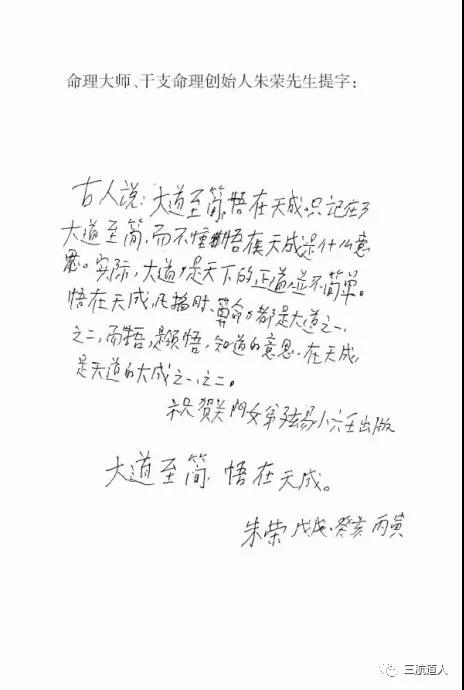 命理大师、干支命理创始人朱荣先生提字：
古人说：大道至简，悟在天成。只记在了
大道至简，而不懂悟在天成是什么意
思。实际，大道，是天下的正道並不简单。
悟在天成，凡指时、算命，都是大道之一、
之二，而悟，是领悟，知道的意思，在天成，
是天道的大成之一，之二。
祝贺关门女弟弦易小六壬出版
大道至简，悟在天成。
朱荣 戊戌、癸亥 丙寅
三航道人